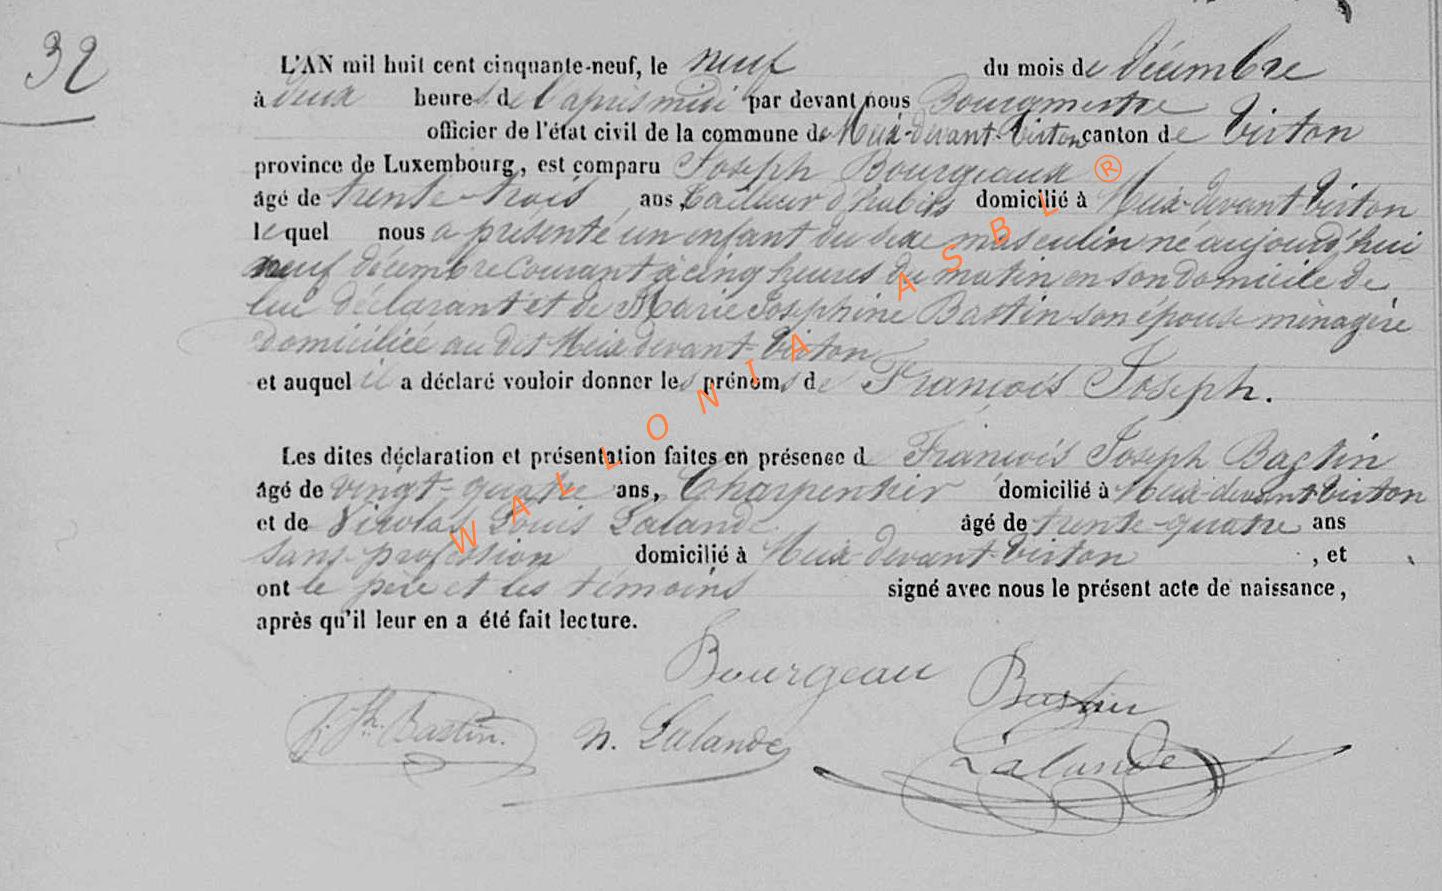 32
L'AN mil huit cent cinquante-neuf, le neuf du mois de décembre
à deux heures de l'après midi par devant nous Bourgmestre
officier de l'état civil de la commune de Meix-devant-Virton canton de Virton
province de Luxembourg, est comparu Joseph Bourgeaux
âgé de trente-trois ans, tailleur d'habits domicilié à Meix-devant Virton
lequel nous a présenté un enfant du sexe masculin né aujourd'hui
neuf décembre courant à cinq heures du matin en son domicile de
lui déclarant et de Marie Josephine Bastin son épouse ménagère
domiciliée au dit Meix devant-Virton
et auquel il a déclaré vouloir donner les prénoms de François Joseph.
Les dites déclaration et présentation faites en présence de François Joseph Bastin
âgé de vingt-quatre ans, Charpentier domicilié à Meix-devant-Virton
et de Nicolas Louis Lalande âgé de trente-quatre ans
sans profession domicilié à Meix-devant-Virton, et
ont le père et les témoins signé avec nous le présent acte de naissance,
après qu'il leur en a été fait lecture.
Bourgeau Bastin
Bastin. N. Lalande Lalande
WALLONIA ASBL ®